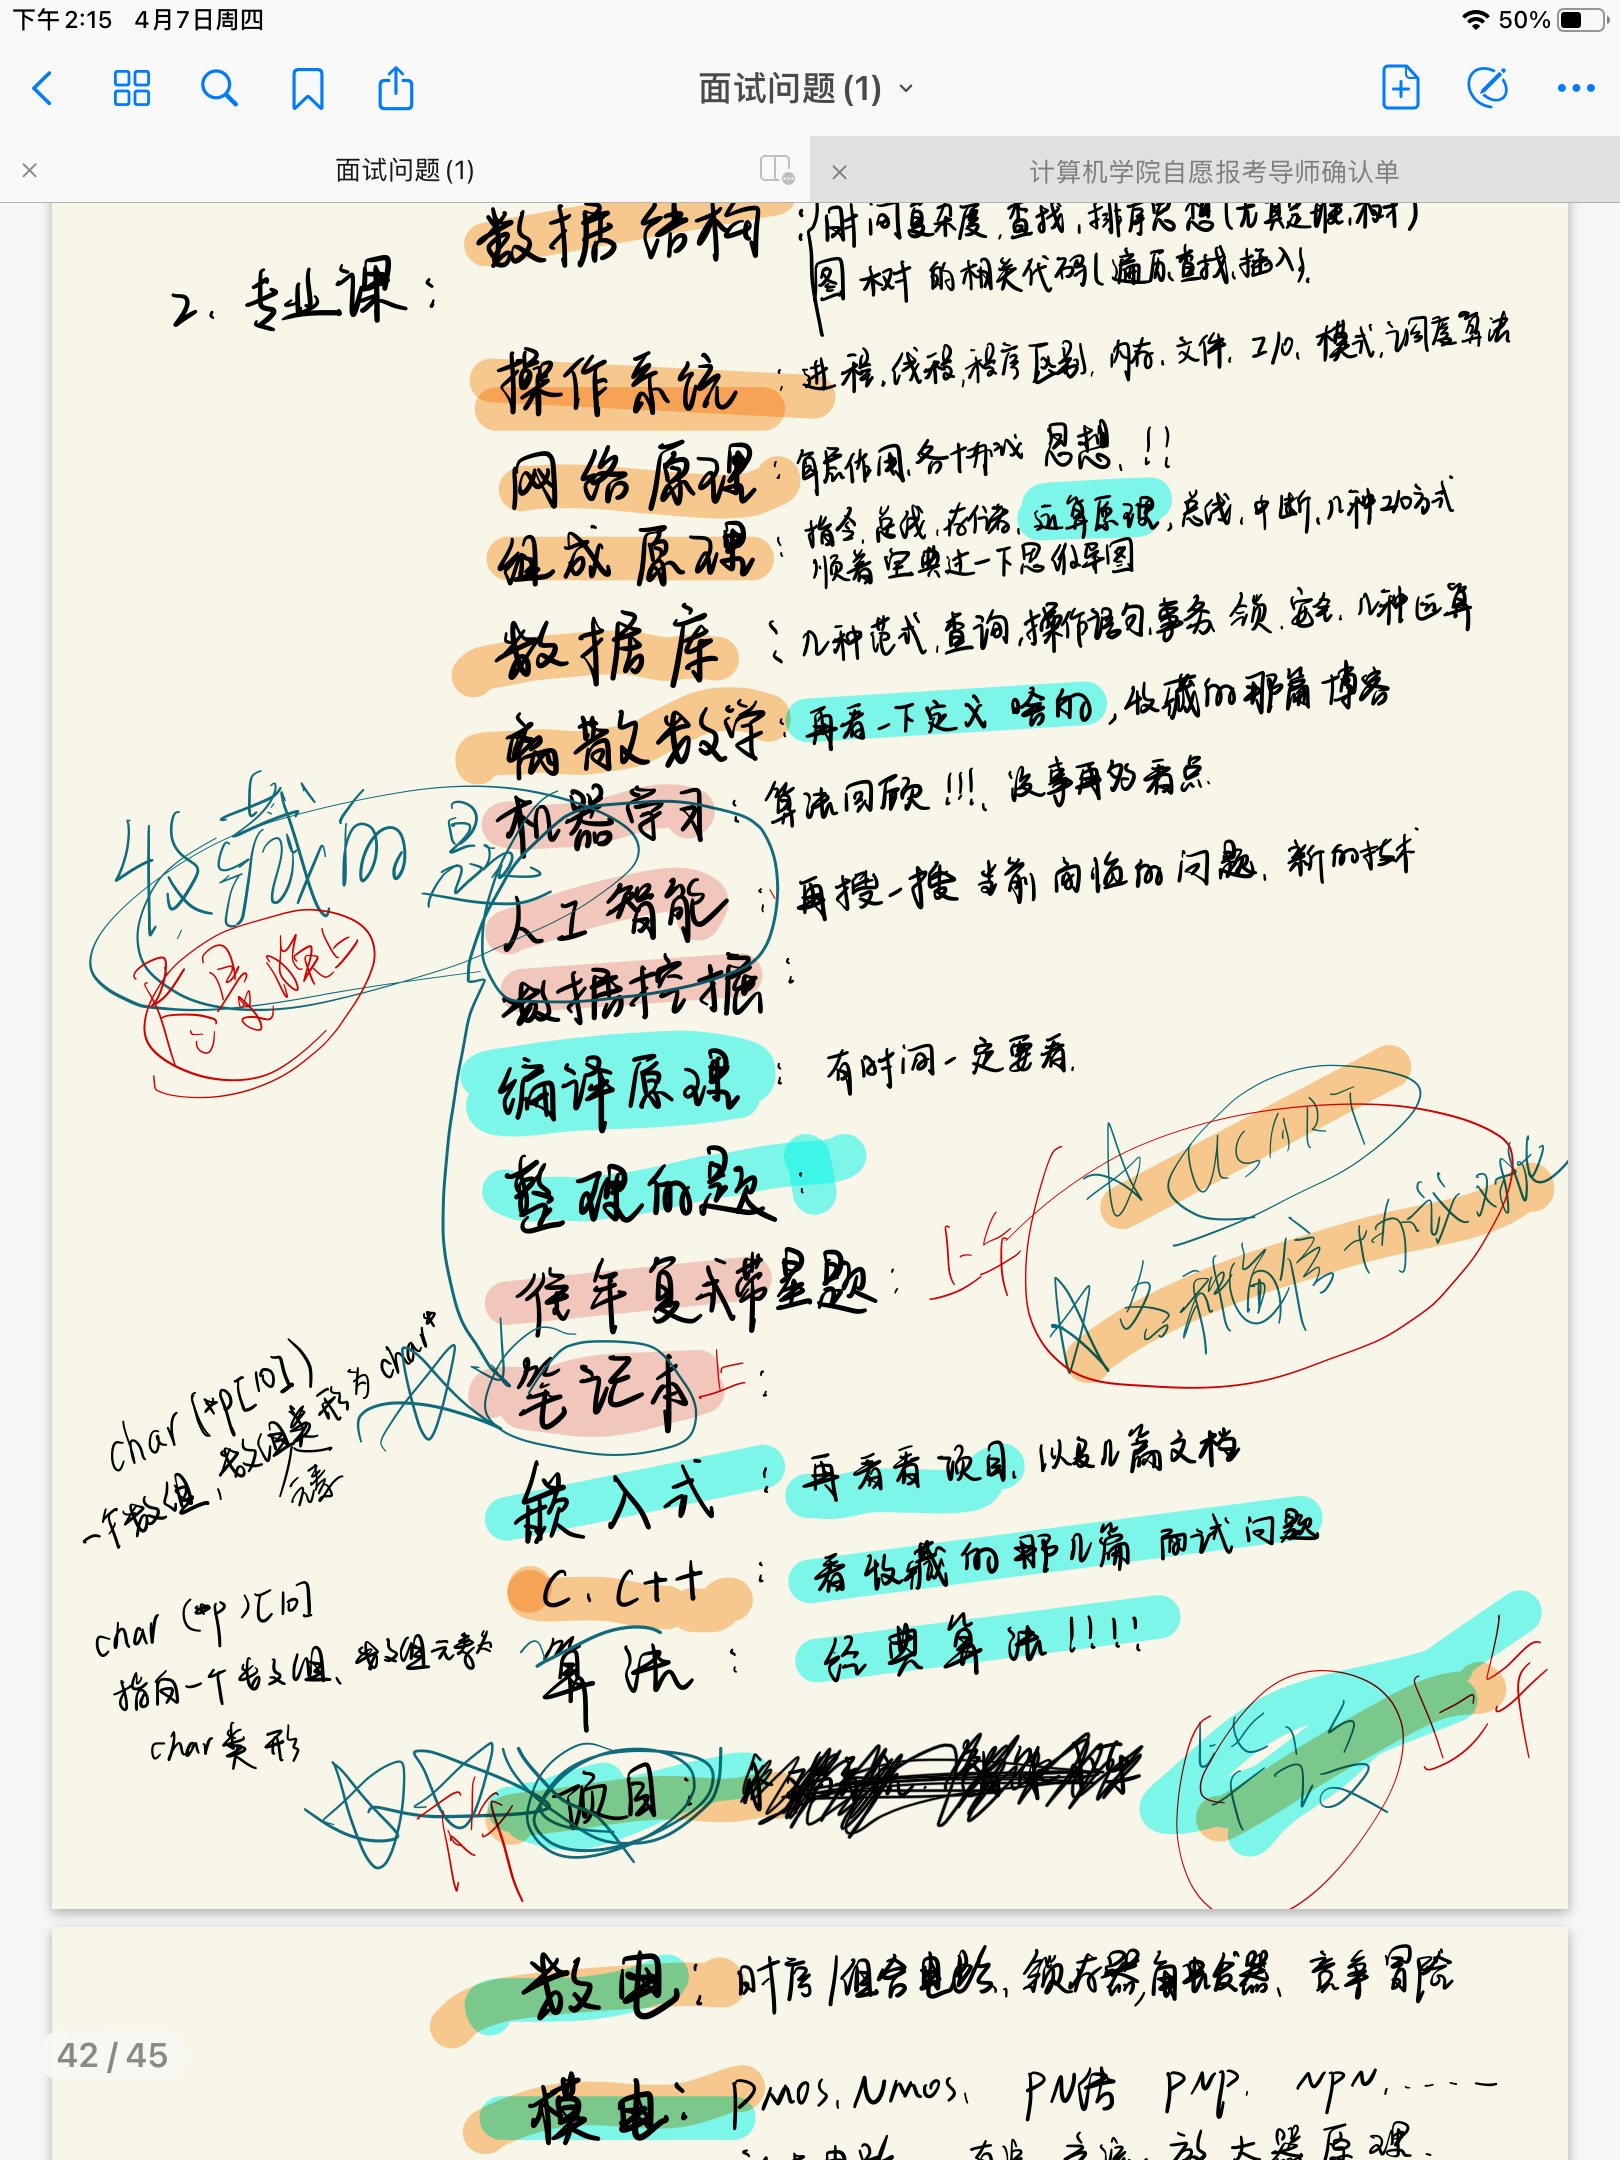 下午2:15 4月7日周四
50%
面试问题 (1)
面试问题 (1)
计算机学院自愿报考导师确认单
2. 专业课：
数据结构：时间复杂度、查找、排序思想(尤其是堆、树)
图 树 的相关代码(遍历、查找、插入).
操作系统：进程、线程、程序区别、内存、文件、I/O、模式、调度算法
网络原理：每层作用、各协议 思想、!!
组成原理：指令、总线、存储、运算原理，总线、中断、几种I/O方式
顺着宝典过一下思维导图
数据库：几种范式、查询、操作语句、事务、锁、安全、几种运算
离散数学：再看一下定义啥的，收藏的那篇博客
机器学习：算法回顾!!!、没事再多看点.
收藏的题
人工智能：再搜一搜当前面临的问题、新的技术
晚上
数据挖掘：
编译原理：有时间一定要看.
USART
整理的题：
上午
各种通信协议对比
往年复试带星题：
笔记本：
上
char (*p[10])
一个数组，数组类形为char*
元素
嵌入式：再看看项目、以及几篇文档
C、C++：看收藏的那几篇面试问题
char (*p)[10]
指向一个数组、数组元素为
char类形
算法：经典算法!!!!
项目：
毕设
上午
下午
数电：时序/组合电路、锁存器,触发器、竞争冒险
42 / 45
模电：PMOS、NMOS、PN结 PNP、NPN、-----
放大器原理、